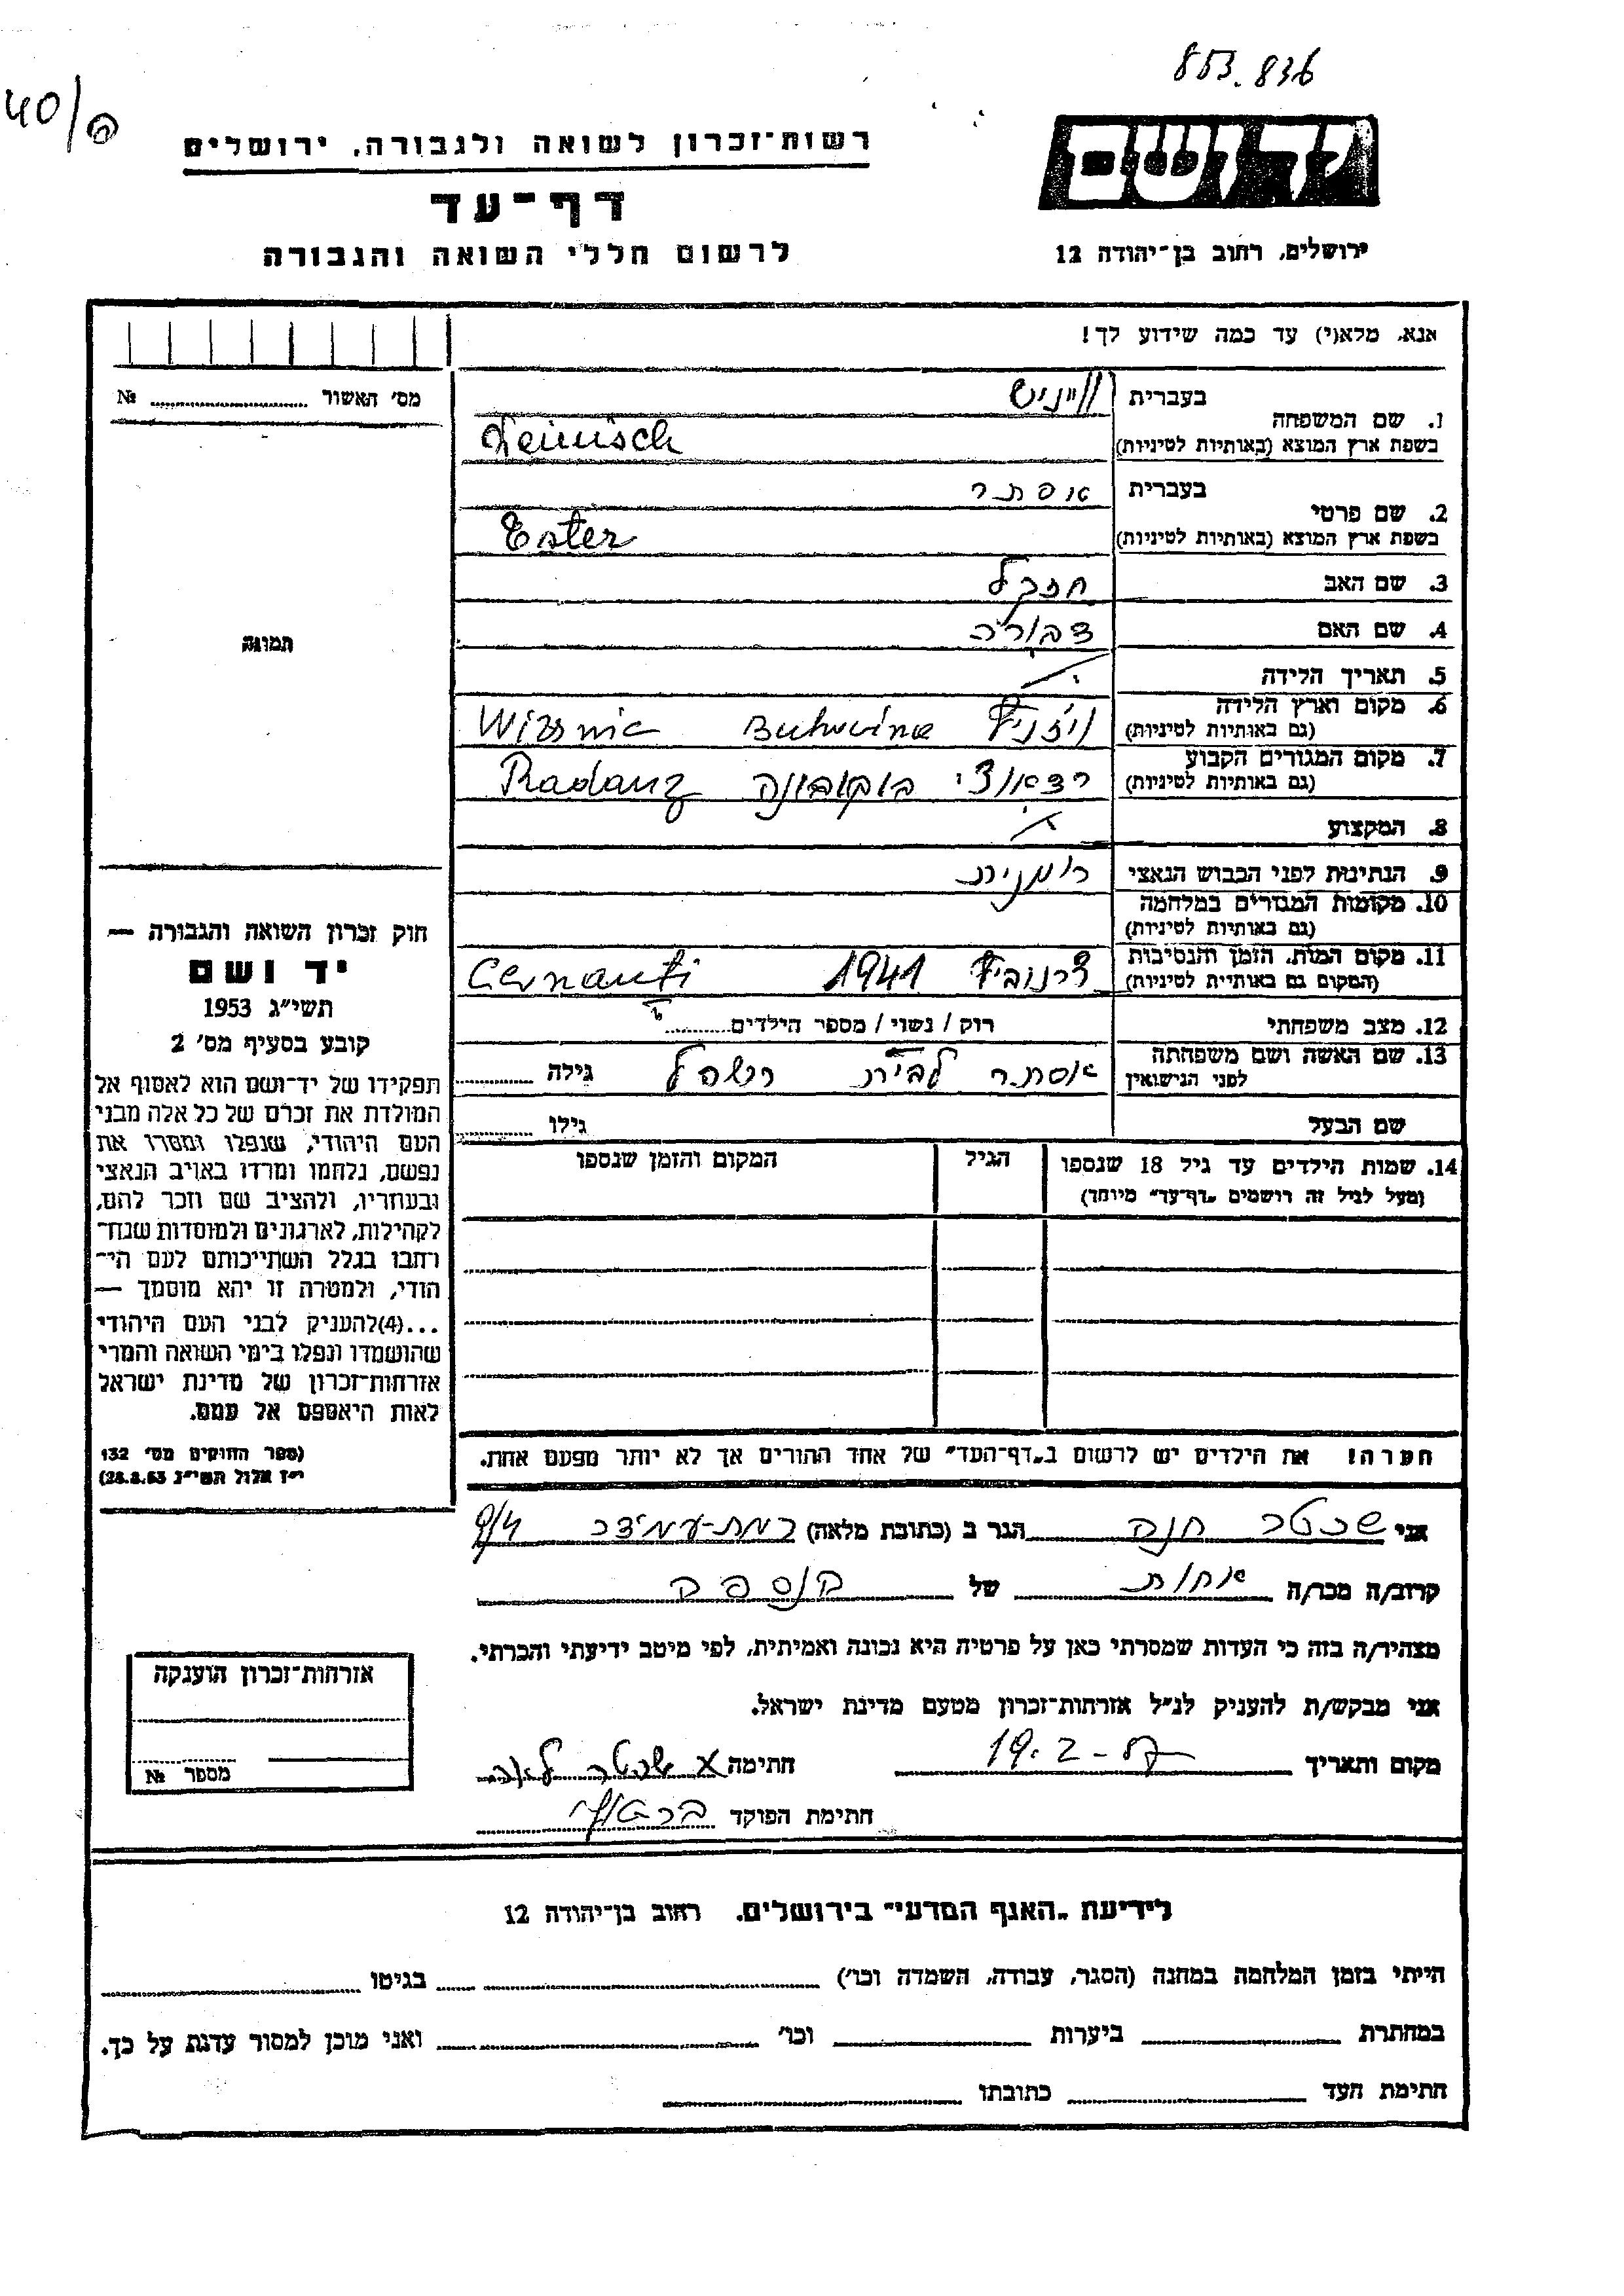 853.836
40/
רשות־זכרון לשואה ולגבורה, ירושלים
דף־עד
לרשום חללי השואה והגבורה
יד ושם
ירושלים, רחוב בן־יהודה 12
אנא, מלא(י) עד כמה שידוע לך!
מס' האשור № 
תמונה
1. שם המשפחה
בעברית
בשפת ארץ המוצא (באותיות לטיניות)
2. שם פרטי
בעברית אסתר
בשפת ארץ המוצא (באותיות לטיניות) Ester
3. שם האב חזקל
4. שם האם דבורה
5. תאריך הלידה
6. מקום וארץ הלידה
(גם באותיות לטיניות) ויזניץ Bukovina Wizsnic
7. מקום המגורים הקבוע
(גם באותיות לטיניות) רדאוצי בוקובינה Radauz
8. המקצוע
9. הנתינות לפני הכבוש הנאצי רומנית
10. מקומות המגורים במלחמה
(גם באותיות לטיניות)
11. מקום המות, הזמן והנסיבות
(המקום גם באותיות לטיניות) צרנוביץ 1941 Cernauti
12. מצב משפחתי רוק / נשוי / מספר הילדים
13. שם האשה ושם משפחתה
לפני הנישואין אסתר לבית גילה
שם הבעל גילו
14. שמות הילדים עד גיל 18 שנספו
(מעל לגיל זה רושמים "דף־עד" מיוחד)
הגיל
המקום והזמן שנספו
חוק זכרון השואה והגבורה —
יד ושם
תשי"ג 1953
קובע בסעיף מס' 2
תפקידו של יד־ושם הוא לאסוף אל
המולדת את זכרם של כל אלה מבני
העם היהודי, שנפלו ומסרו את
נפשם, נלחמו ומרדו באויב הנאצי
ובעוזריו, ולהציב שם וזכר להם,
לקהילות, לארגונים ולמוסדות שנח־
רחבו בגלל השתייכותם לעם הי־
הודי, ולמטרה זו יהא מוסמך —
...(4)להעניק לבני העם היהודי
שהושמדו ונפלו בימי השואה והמרי
אזרחות־זכרון של מדינת ישראל
לאות היאספם אל עמם.
(ספר החוקים מס' 132
י"ז אלול תשי"ג 28.8.53)
הערה! את הילדים יש לרשום ב"דף־העד" של אחד ההורים אך לא יותר מפעם אחת.
אני שכטר חנה הגר ב (כתובת מלאה) רמת-עמידר 9/4
קרוב/ה מכר/ה אחות של הנספה
מצהיר/ה בזה כי העדות שמסרתי כאן על פרטיה היא נכונה ואמיתית, לפי מיטב ידיעתי והכרתי.
אני מבקש/ת להעניק לנ"ל אזרחות־זכרון מטעם מדינת ישראל.
מקום ותאריך 19.2- חתימה
חתימת הפוקד
אזרחות־זכרון הוענקה
מספר №
לידיעת "האגף המדעי" בירושלים, רחוב בן־יהודה 12
הייתי בזמן המלחמה במחנה (הסגר, עבודה, השמדה וכו') בגיטו
במחתרת ביערות וכו' ואני מוכן למסור עדות על כך.
חתימת העד כתובתו